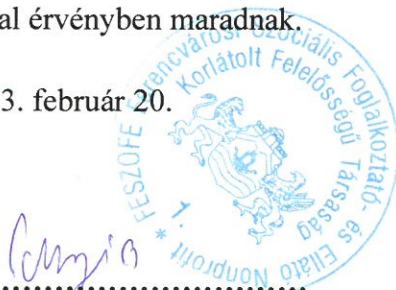 al érvényben maradnak.
3. február 20.
FESZOFE Ferencvárosi Szociális Foglalkoztató- és Ellátó Nonprofit *
Korlátolt Felelősségű Társaság
1.